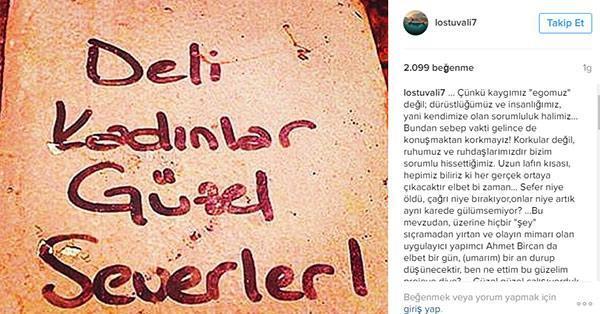 Deli
Kadınlar
Güzel
Severler!
lostuvali7
Takip Et
2.099 beğenme
1g
lostuvali7 ... Çünkü kaygımız "egomuz"
değil; dürüstlüğümüz ve insanlığımız,
yani kendimize olan sorumluluk halimiz...
Bundan sebep vakti gelince de
konuşmaktan korkmayız! Korkular değil,
ruhumuz ve ruhdaşlarımızdır bizim
sorumlu hissettiğimiz. Uzun lafın kısası,
hepimiz biliriz ki her gerçek ortaya
çıkacaktır elbet bi zaman... Sefer niye
öldü, çağrı niye bırakıyor,onlar niye artık
aynı karede gülümsemiyor? ...Bu
mevzudan, üzerine hiçbir "şey"
sıçramadan yırtan ve olayın mimarı olan
uygulayıcı yapımcı Ahmet Bircan da
elbet bir gün, (umarım) bir an durup
düşünecektir, ben ne ettim bu güzelim
projeye diye? ... Güzel güzel çalışıyorduk
Beğenmek veya yorum yapmak için
giriş yap.